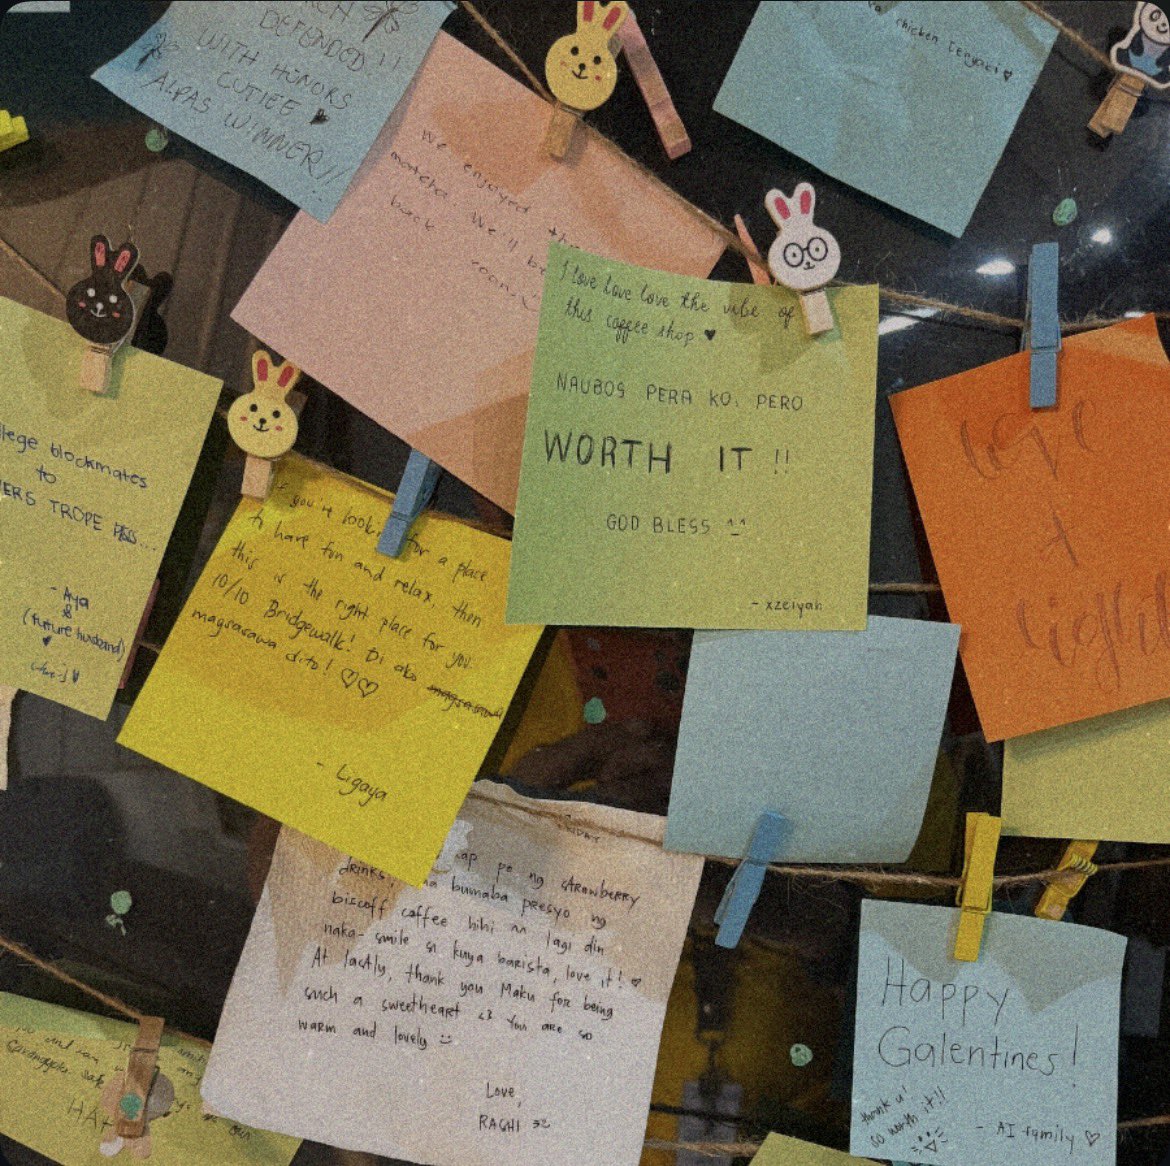 DEFENDED !!
WITH HONORS
CUTIEE ♥
ALPAS WINNER!!
chicken teriyaki ♡
We enjoyed the
matcha. We'll be
back soon
I love love love the vibe of
this coffee shop ♥
NAUBOS PERA KO, PERO
WORTH IT !!
GOD BLESS ^^
- xzeiyah
Love
+
Light
blockmates
to
TROPE
- Aya
&
(future husband)
♥
If you're looking for a place
to have fun and relax, then
this is the right place for you.
10/10 Bridgewalk! Di ako
magsasawa dito! ♡♡
- Ligaya
po ng strawberry
drinks, bumaba presyo ng
biscoff coffee hihi lagi din
naka-smile si kuya barista, love it! ♡
At lastly, thank you Maku for being
such a sweetheart <3 You are so
warm and lovely
Love,
Happy
Galentines!
thank u!
so worth it!!
- AI family ♡